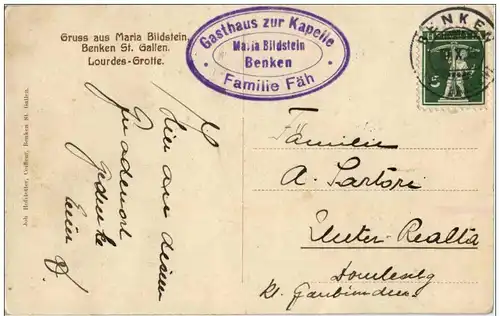 Gruss aus Maria Bildstein.
Benken St. Gallen.
Lourdes-Grotte.
Gasthaus zur Kapelle
Maria Bildstein
Benken
• Familie Fäh •
BENKEN
5
Joh. Hofstetter, Coiffeur, Benken St. Gallen.
Hier an diesem
Gnadenort
gedenke
Familien
A. Sartori
Unter-Realta
Domleschg
Kt. Graubünden